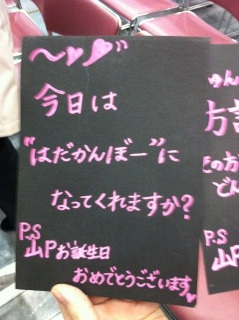 〜♥♪"
今日は
"はだかんぼー"に
なってくれますか?
P.S
山Pお誕生日
おめでとうございます♥
方
P.S
山P